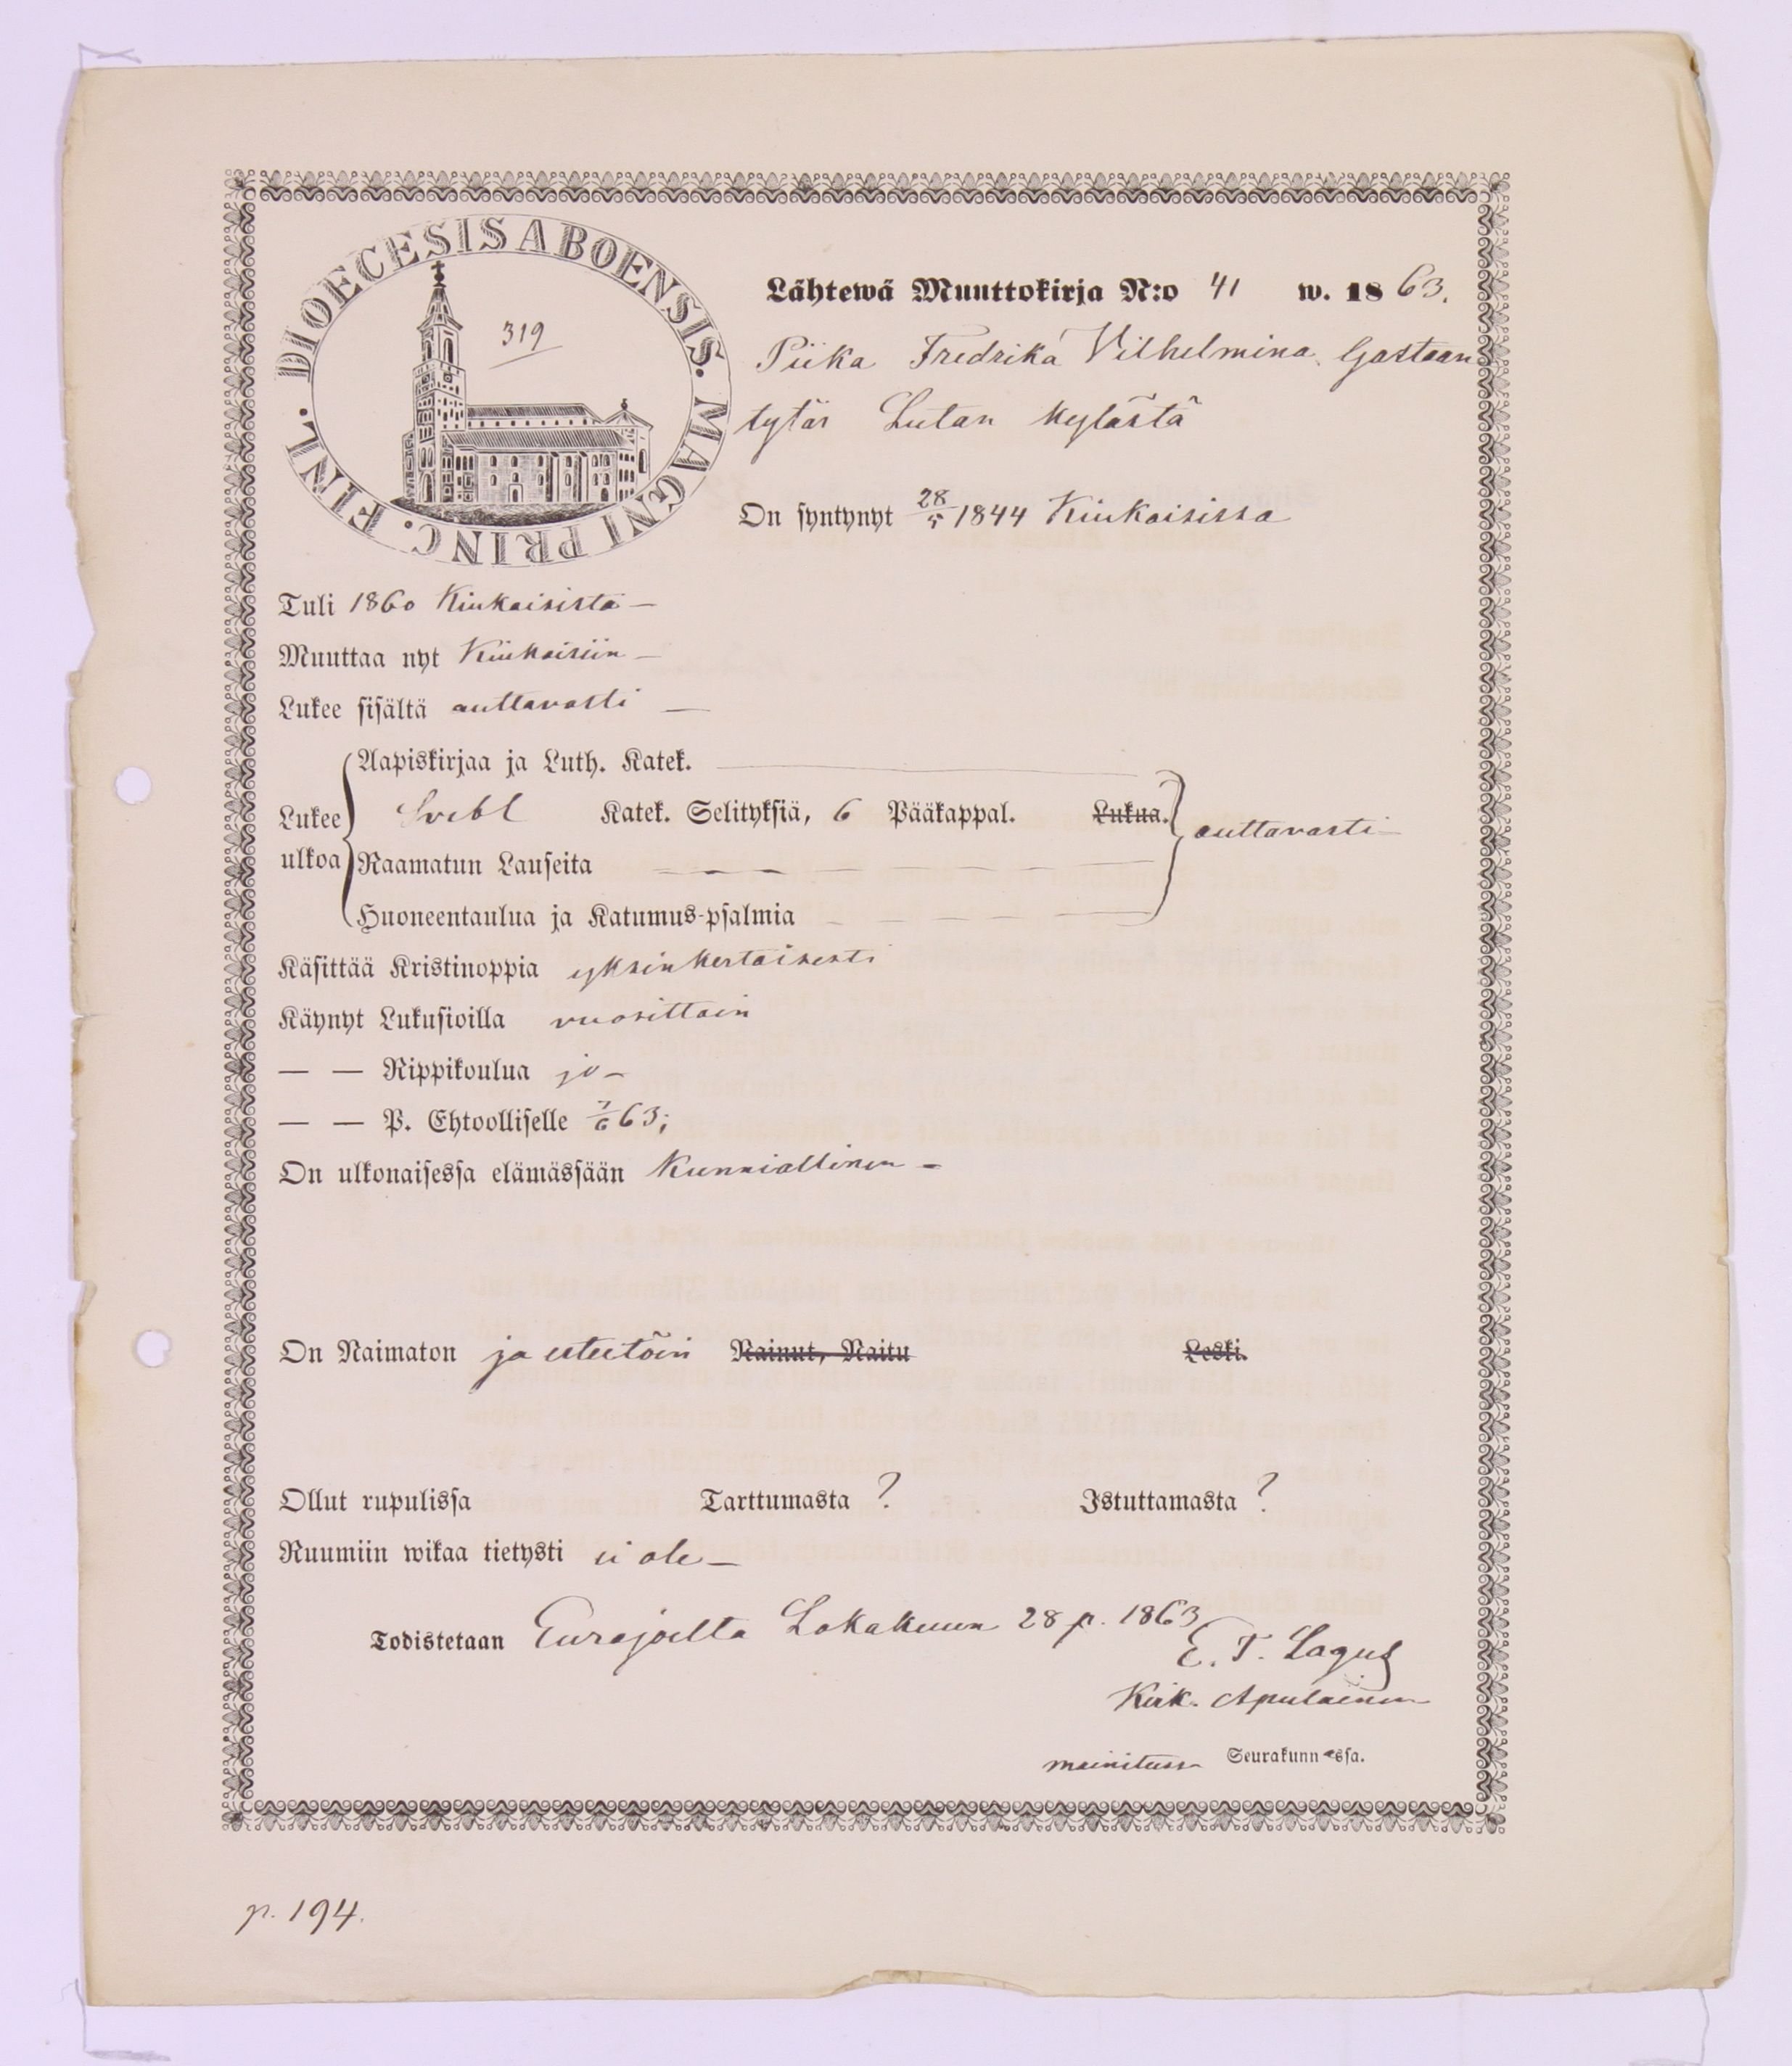 DIOECESIS ABOENSIS. MAGNI PRINC. FINL.
319
Lähtewä Muuttokirja N:o 41 w. 1863.
Piika Fredrika Vilhelmina Gostaan
tytär Lutan kylästä
On syntynyt 28/5 1844 Kiukaisissa
Tuli 1860 Kiukaisista —
Muuttaa nyt Kiukaisiin —
Lukee sisältä auttavasti —
Aapiskirjaa ja Luth. Katek.
Lukee ulkoa
Svebl Katek. Selityksiä, 6 Pääkappal. Lukua. auttavasti —
Raamatun Lauseita
Huoneentaulua ja Katumus-psalmia
Käsittää Kristinoppia yksinkertaisesti
Käynyt Lukusioilla vuosittain
— — Rippikoulua jo —
— — P. Ehtoolliselle 7/6 63;
On ulkonaisessa elämässään Kunniallinen —
On Naimaton ja esteetöin Nainut, Naitu Leski.
Ollut rupulissa Tarttumasta ? Istuttamasta ?
Ruumiin wikaa tietysti ei ole —
Todistetaan Eurajoelta Lokakuun 28 p. 1863
E. T. Lagus
Kirk. Apulainen
mainitussa Seurakunnassa.
p. 194.